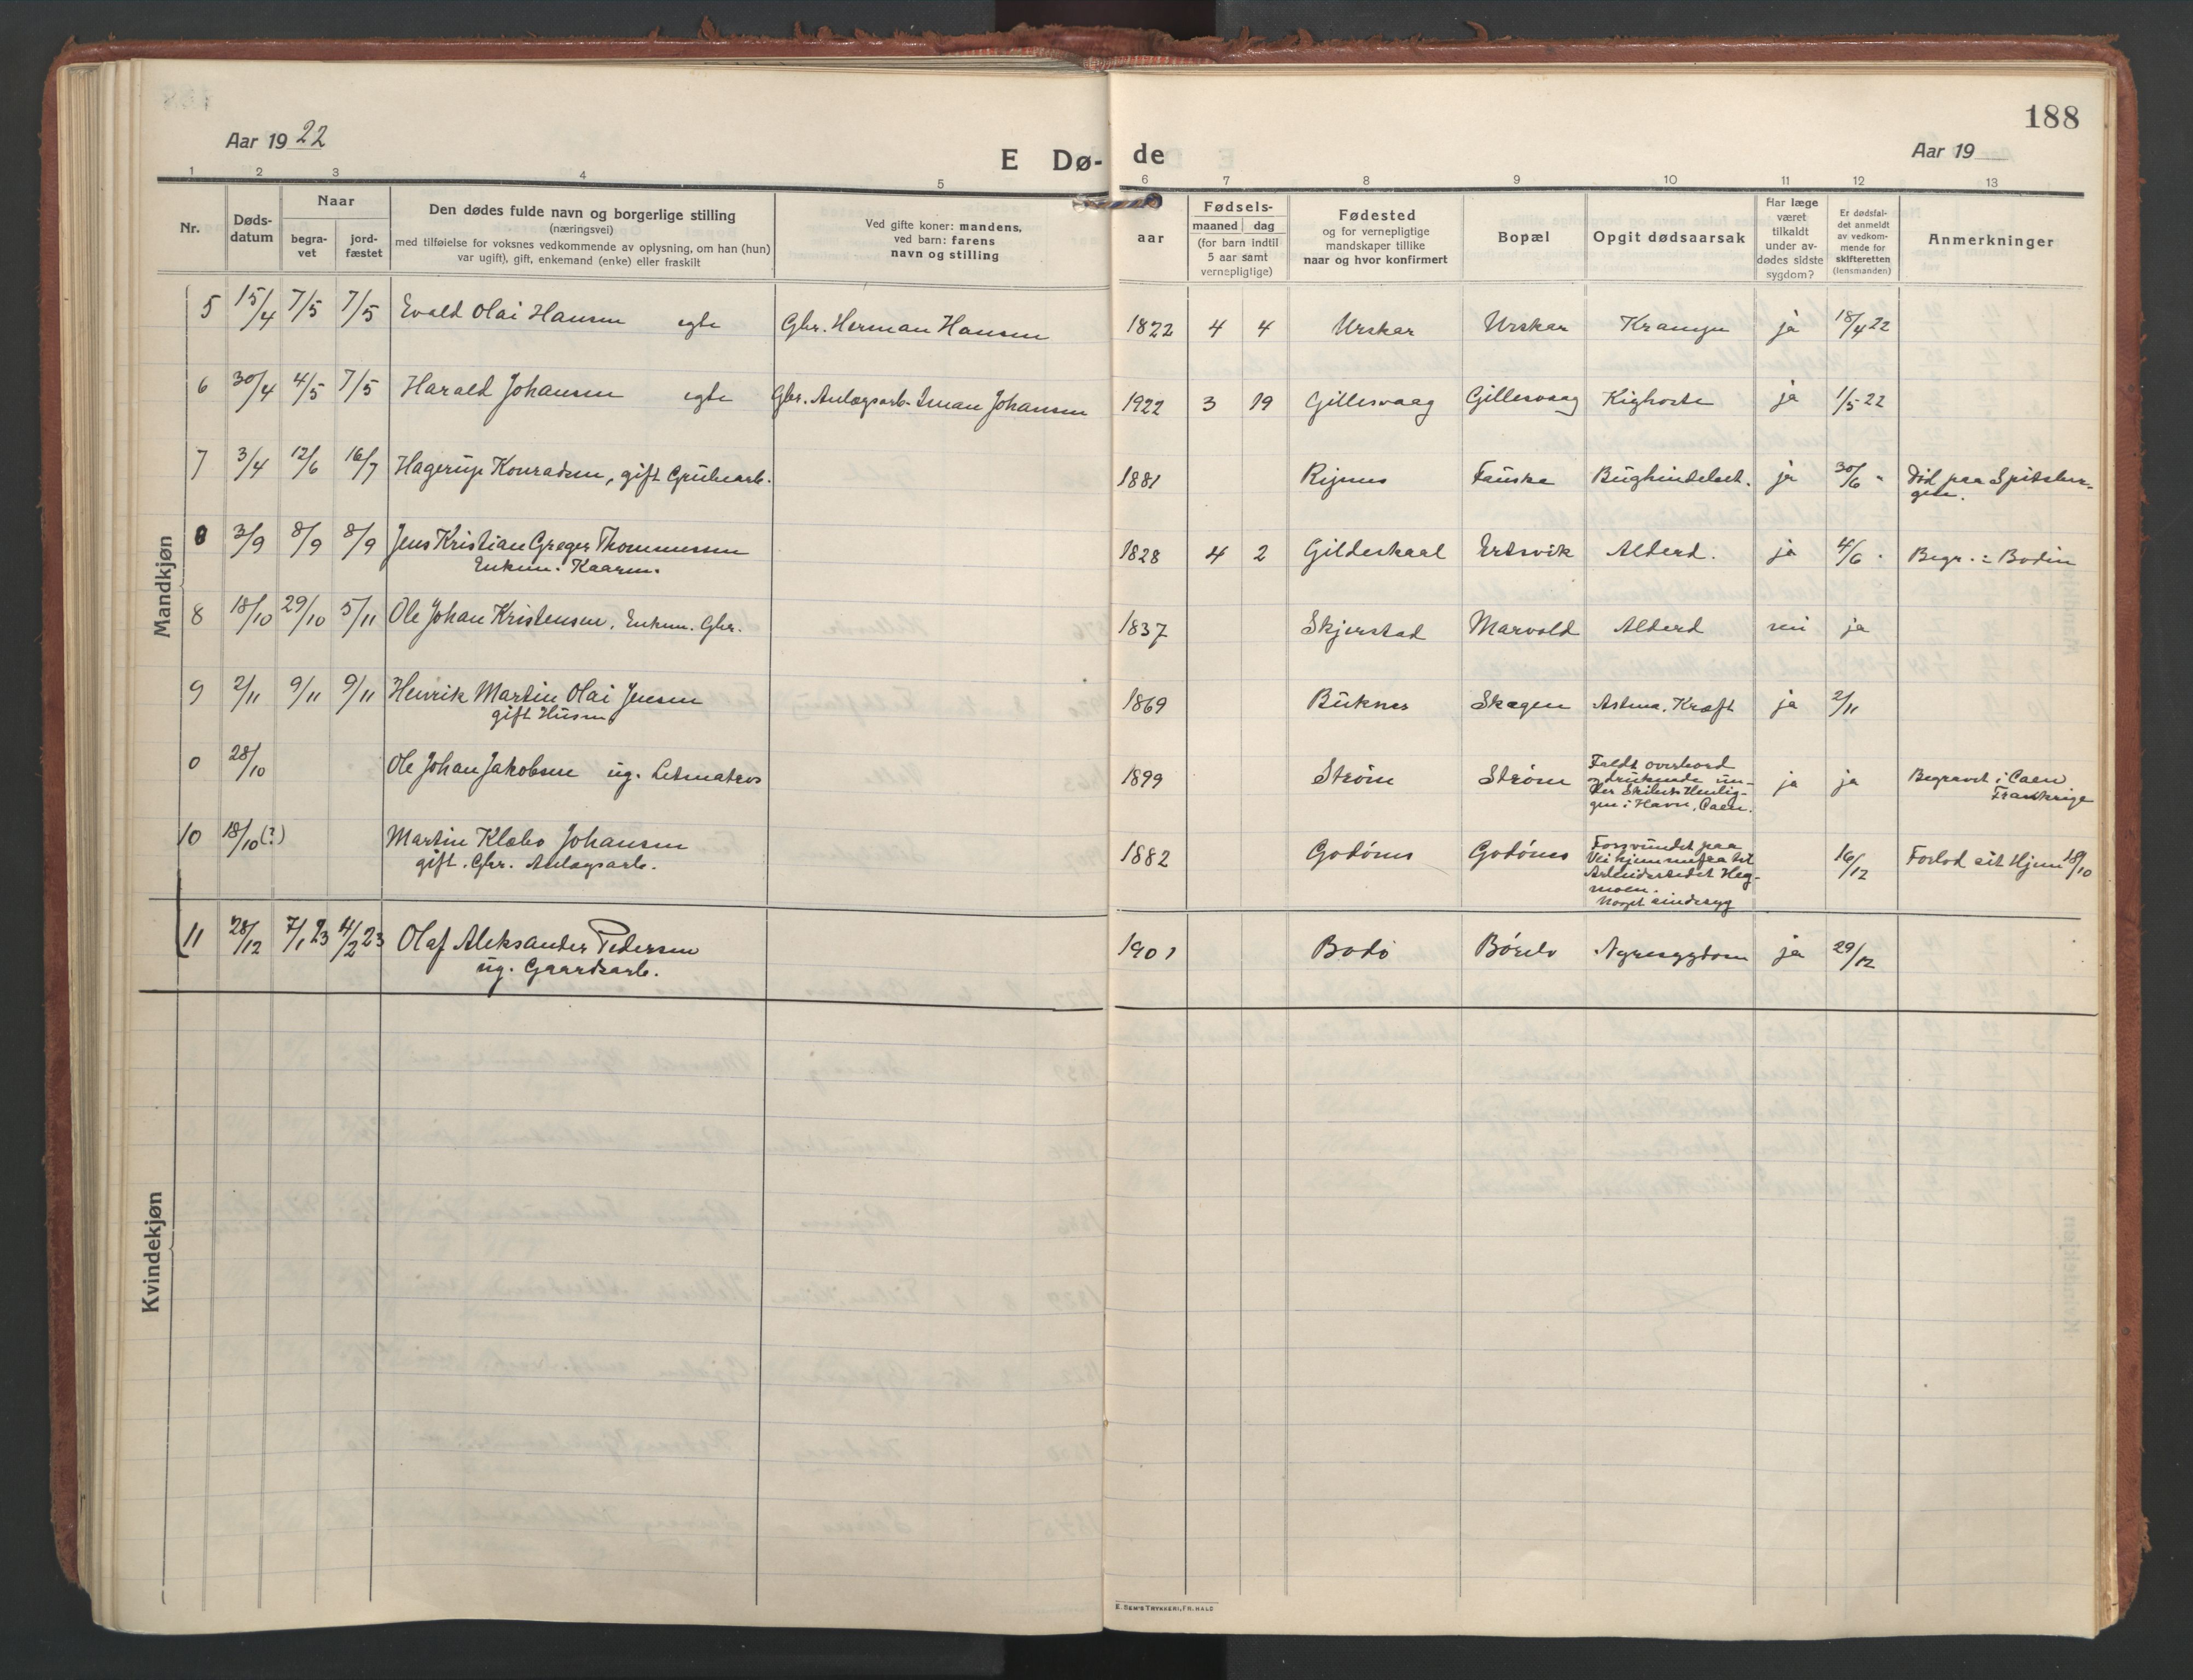 188
Aar 19 22
E Dø- de
Aar 19
1 2 3 4 5 6 7 8 9 10 11 12 13
Nr.
Døds-
datum
Naar
begra-
vet
jord-
fæstet
Den dødes fulde navn og borgerlige stilling
(næringsvei)
med tilføielse for voksnes vedkommende av oplysning, om han (hun)
var ugift), gift, enkemand (enke) eller fraskilt
Ved gifte koner: mandens,
ved barn: farens
navn og stilling
aar
Fødsels-
maaned dag
(for barn indtil
5 aar samt
vernepligtige)
Fødested
og for vernepligtige
mandskaper tillike
naar og hvor konfirmert
Bopæl
Opgit dødsaarsak
Har læge
været
tilkaldt
under av-
dødes sidste
sygdom?
Er dødsfal-
det anmeldt
av vedkom-
mende for
skifteretten
(lensmanden)
Anmerkninger
Mandkjøn
5 15/4 7/5 7/5 Evald Olai Hansen egte Gbr. Herman Hansen 1822 4 4 Urskar Urskar Krampe ja 18/4 22
6 30/4 4/5 7/5 Harald Johansen egte Gbr. Anlægsarb. Johansen 1922 3 19 Gillesvaag Gillesvaag Kighoste ja 1/5 22
7 3/4 12/6 16/7 Hagerup Konradsen, gift Grubearb. 1881 Fauske ja 30/6 " Död paa Spitsber-
gen.
8 3/9 8/9 8/9 Jens Kristian Greger Thommessen 1828 4 2 Gildeskaal Ertsvik Alderd. ja 4/6 " Begr. i Bodin
Enkem. Kaarm.
8 18/10 29/10 5/11 Ole Johan Kristensen, Enkem. Gbr. 1837 Skjerstad Marvold Alderd nei ja
9 2/11 9/11 9/11 Henrik Martin Olai Jensen 1869 Buknes Skagen Astma. Kræft ja 2/11
gift Husm
0 28/10 Ole Johan Jakobsen ug. Letmatros 1899 Ström Ström Faldt overbord
og druknede un-
der Skibets Henlig-
gen i Havn, Caen. ja ja Begravet i Caen
Frankrige
10 18/10 (?) Martin Klæbo Johansen 1882 Godönes Godönes Forsvundet paa
Vei hjemmefra til
Arbeidsstedet Heg-
moen.
Noget sindssyg 16/12 Forlod sit Hjem 18/10
gift. Gbr. Anlægsarb.
11 28/12 7/1 23 4/2 23 Olaf Aleksander Pedersen 1901 Bodö Börelv Nyresygdom ja 29/12
ug. Gaardsarb.
Kvindekjøn
E. SEM'S TRYKKERI, FR. HALD